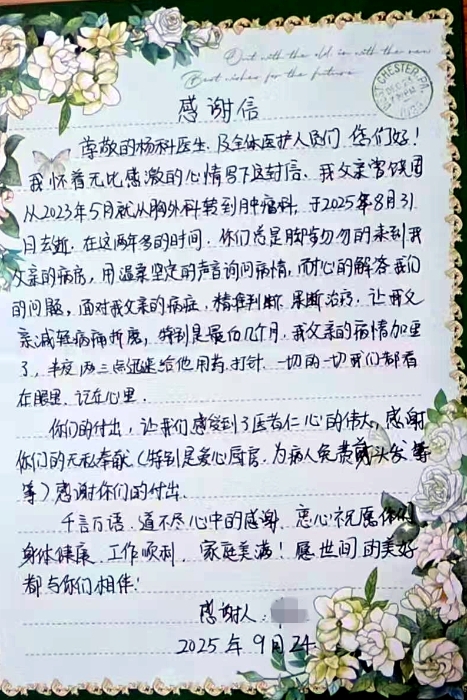 Out with the old in with the new
Best wishes for the future
CHESTER, PA
感谢信
尊敬的杨科医生及全体医护人员们 您们好！
我怀着无比感激的心情写下这封信．我父亲常镇国
从2023年5月就从胸外科转到肿瘤科，于2025年8月31
日去逝．在这两年多的时间．你们总是脚步匆匆的来到我
父亲的病房，用温柔坚定的声音询问病情，耐心的解答我们
的问题，面对我父亲的病症，精准判断．果断治疗．让我父
亲减轻病痛折磨，特别是最后几个月．我父亲的病情加重
了，半夜两三点还要给他用药．打针．一切的一切我们都看
在眼里．记在心里．
你们的付出，让我们感受到了医者仁心的伟大，感谢
你们的无私奉献（特别是爱心厨房．为病人免费剪头发等
等）感谢你们的付出．
千言万语．道不尽心中的感谢．衷心祝愿你们
身体健康．工作顺利．家庭美满！愿世间的美好
都与你们相伴！
感谢人：
2025年9月24